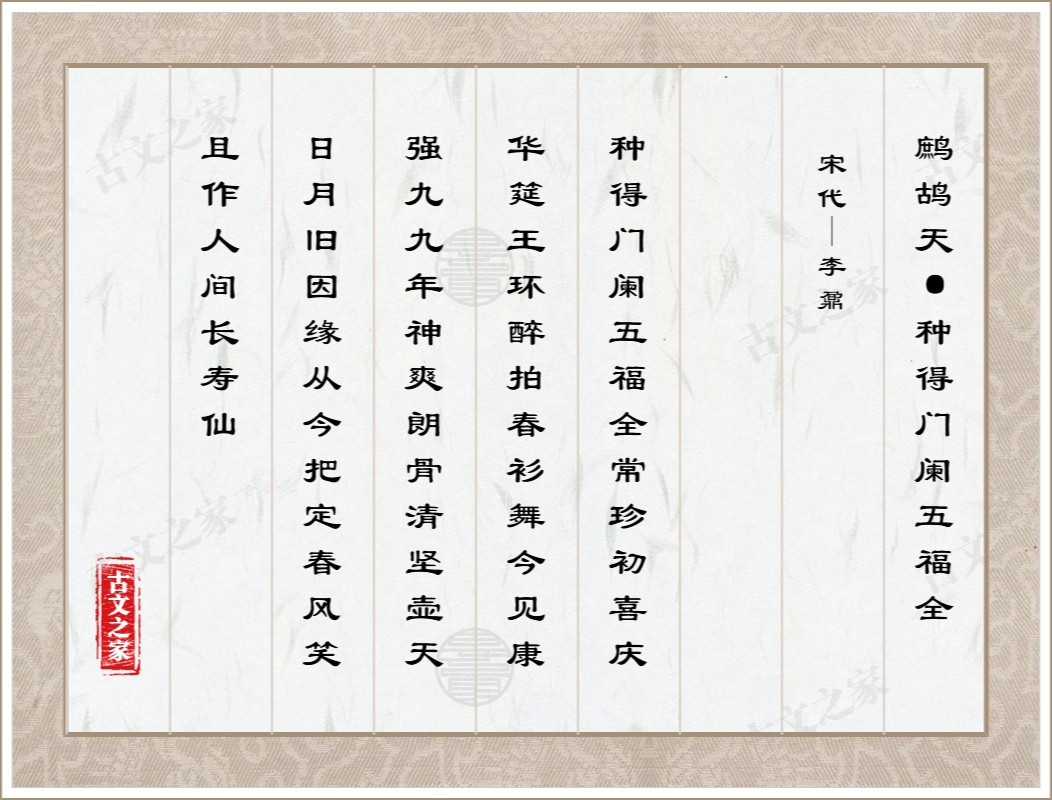 鹧鸪天●种得门阑五福全
宋代—李鼐
种得门阑五福全常珍初喜庆
华筵王环醉拍春衫舞今见康
强九九年神爽朗骨清坚壶天
日月旧因缘从今把定春风笑
且作人间长寿仙
古文之家
古文之家
古文之家
古文之家
古文之家